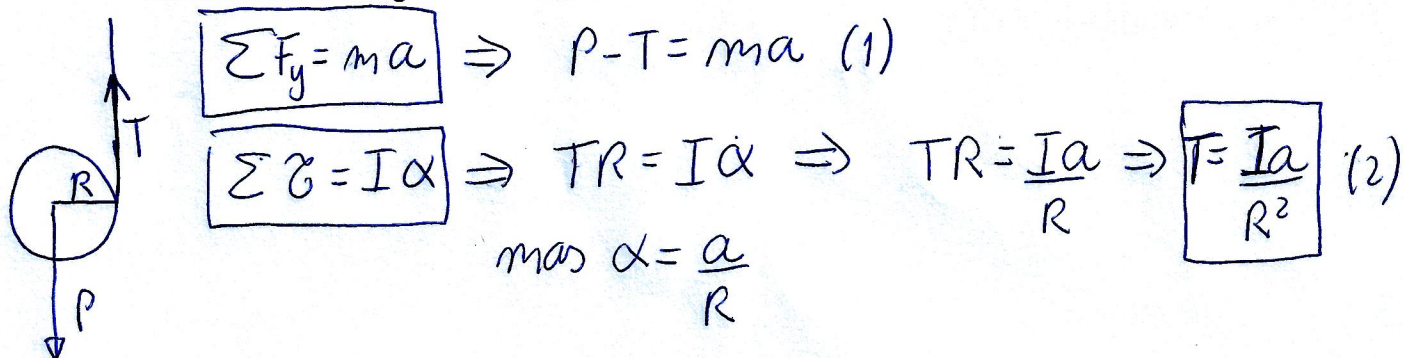 ΣFy = ma ⇒ P - T = ma (1)
T
R
Στ = Iα ⇒ TR = Iα ⇒ TR = Ia/R ⇒ T = Ia/R² (2)
mas α = a/R
P